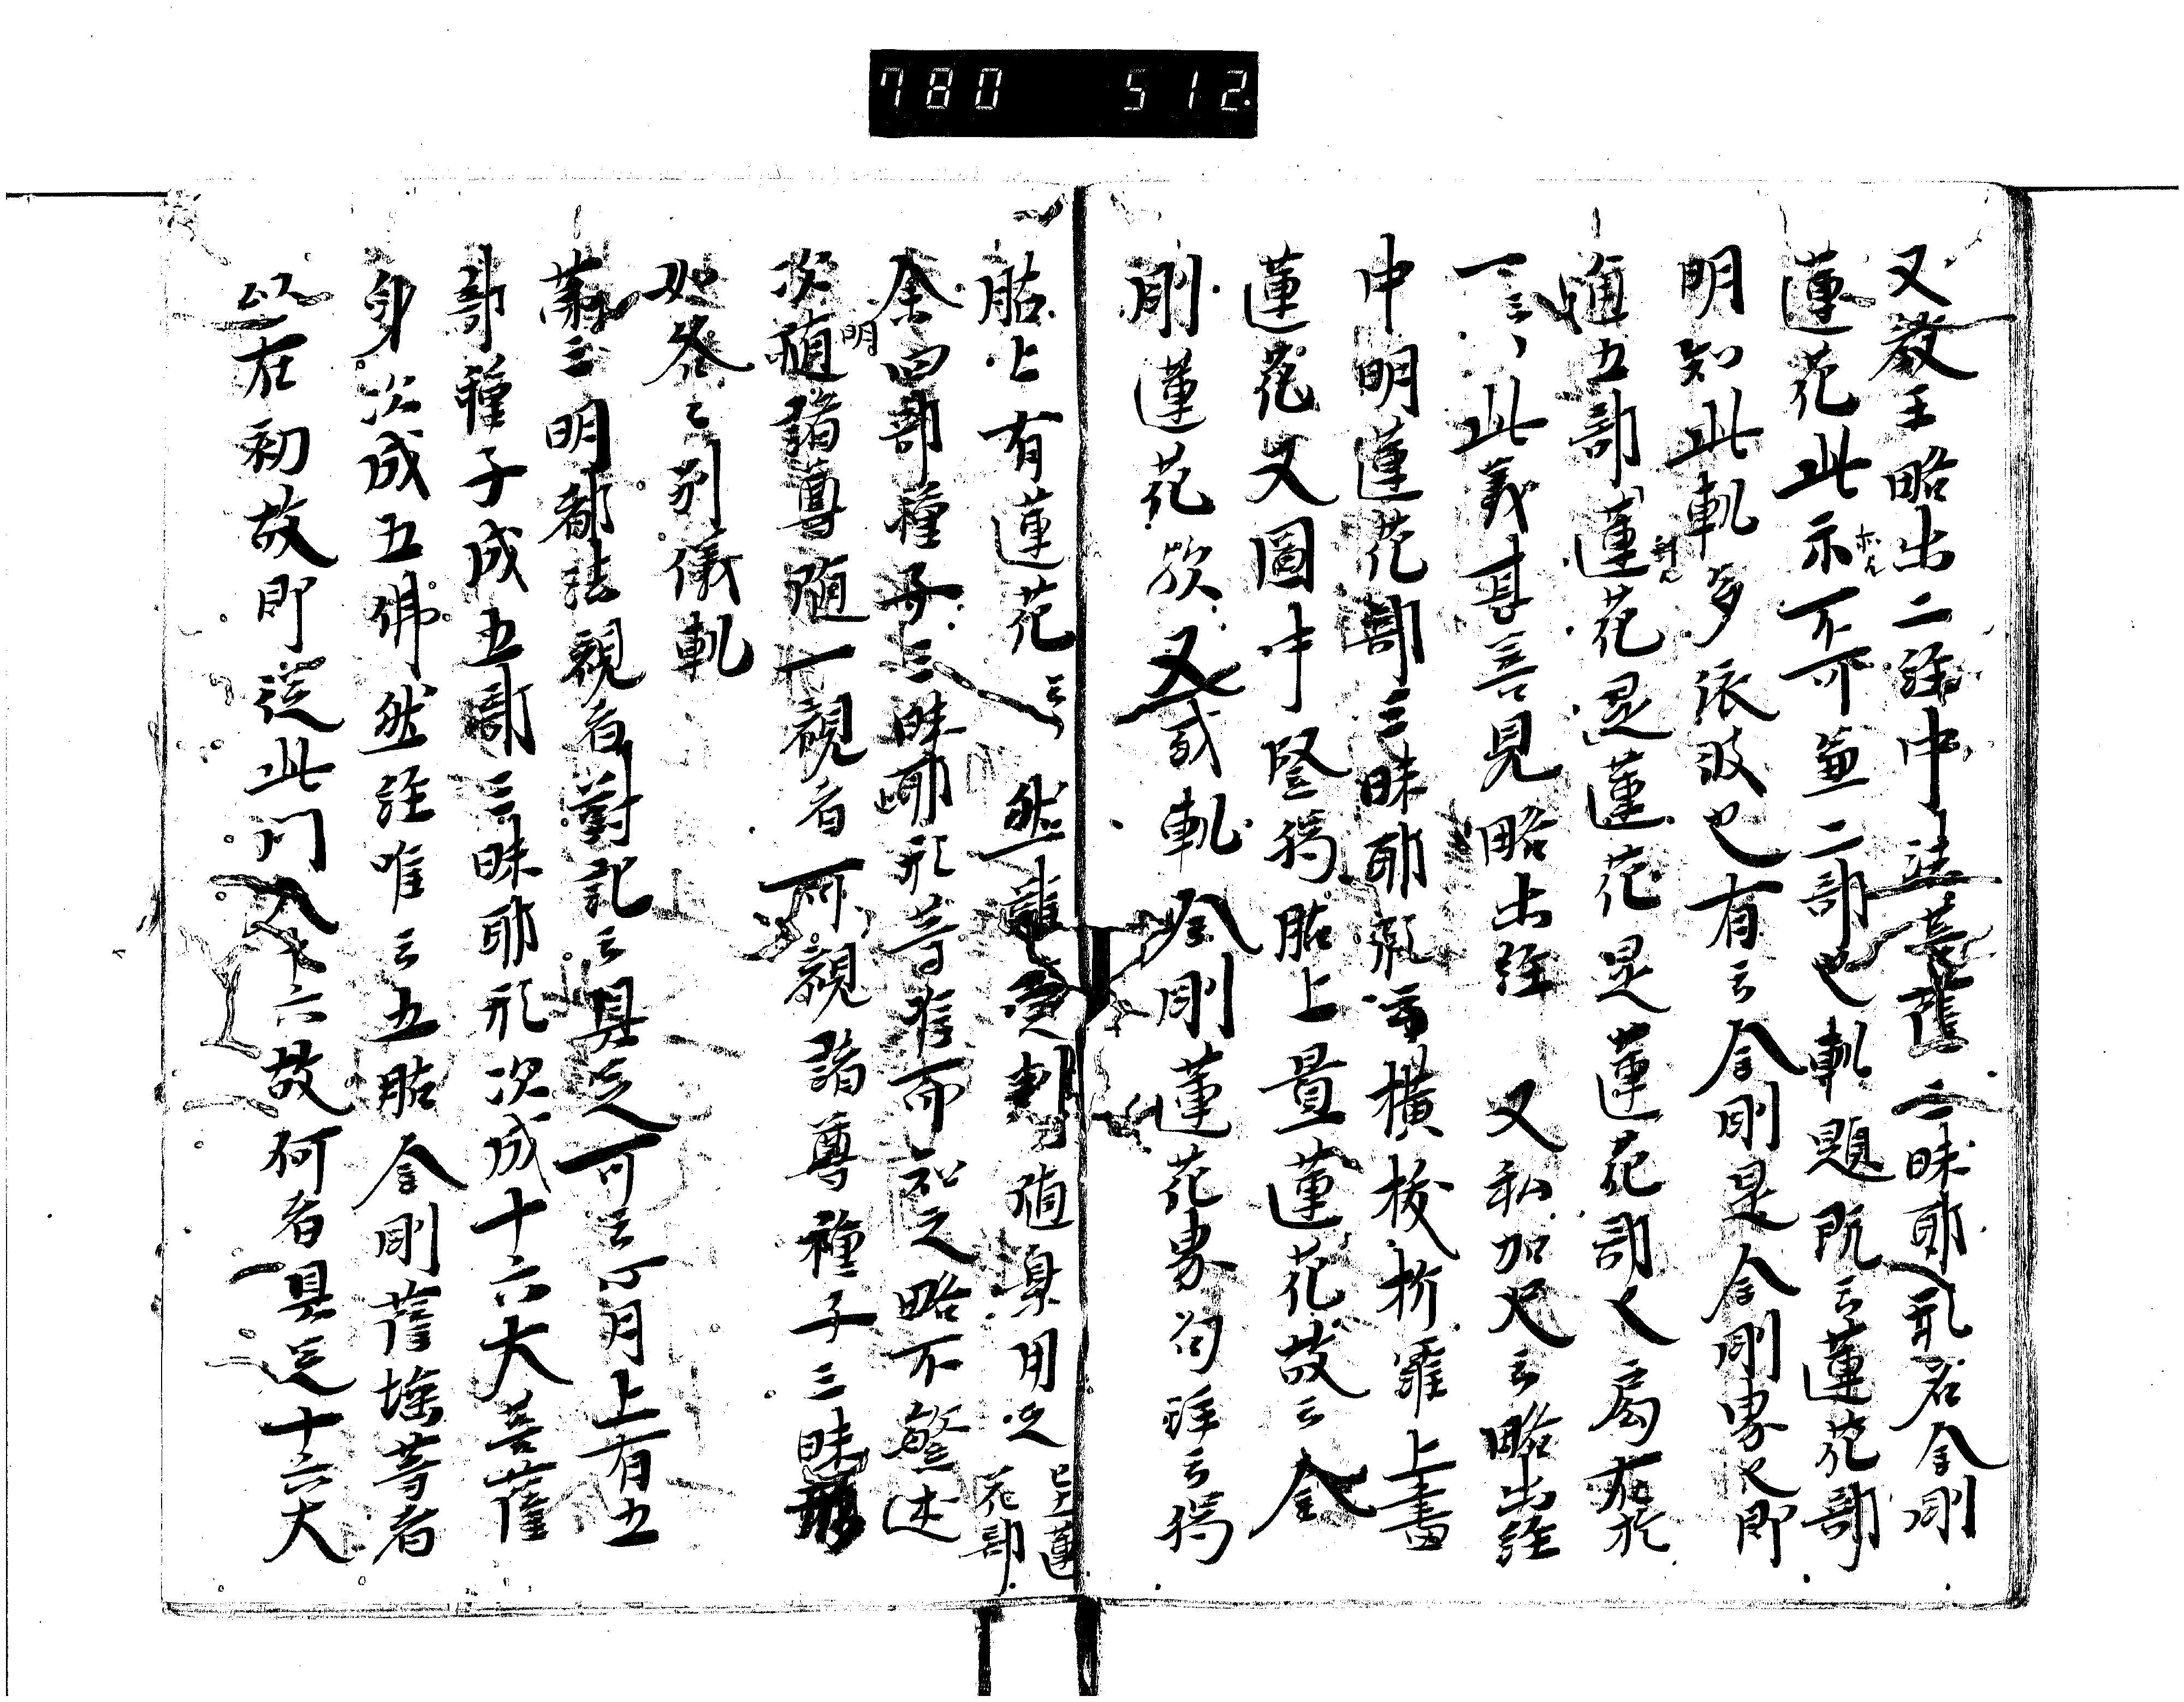 780 512.
又教王略出二経中法菩薩三昧耶形名金剛
蓮花此示不可並二部也軌題既云蓮花部
明知此軌多依彼也有云金剛是金剛界也即
通五部蓮花是蓮花是蓮花部又局有於
一云々此義
善見略出経 又私加尺云略出経
中明蓮花部三昧耶形云横
上畫
蓮花又圖中竪獨股上置蓮花故云金
剛蓮花歟又或軌金剛蓮花界句詳云獨
股上有蓮花云々 然
用之 已上蓮花部
余四部種子三昧耶形等准而知之略不繁述
次明随諸尊随一観者所観諸尊種子三昧耶形
如各々別儀軌
第三明都法観者對記云具足可云心月上有五
部種子成五部三昧耶形次成十六大菩薩
身次成五佛然経唯云五股金剛薩埵等者
以在初故即従此門入十六故何者具足十六大